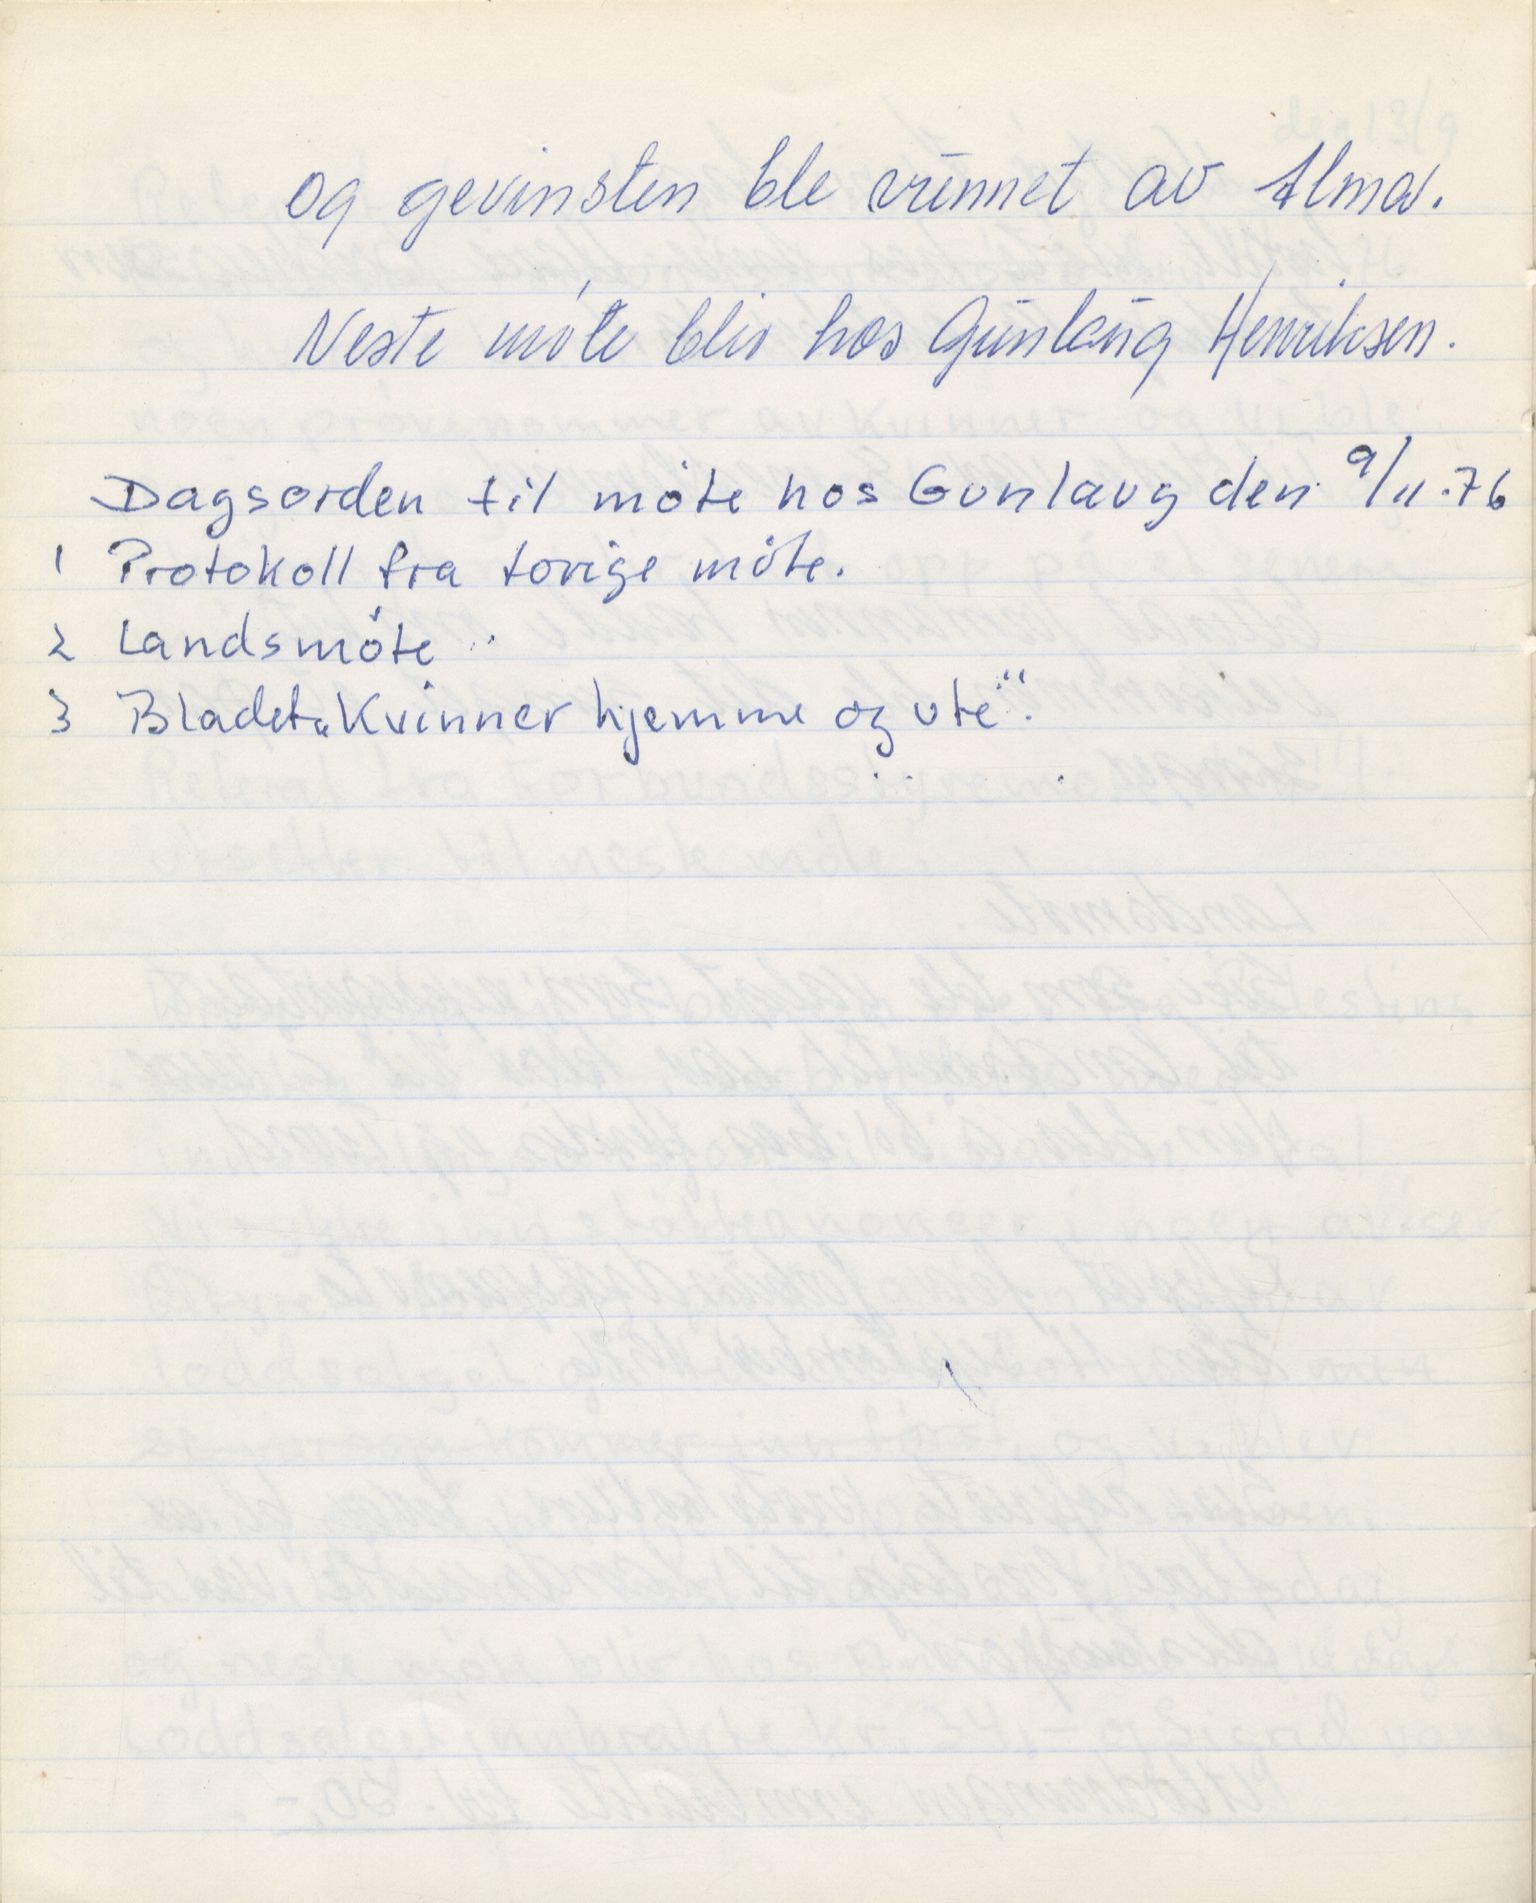 og gevinsten ble vunnet av Alma.
Neste møte blir hos Gunlaug Henriksen.
Dagsorden til møte hos Gunlaug den 9/11.76
1 Protokoll fra forrige møte.
2 Landsmøte
3 Bladet „Kvinner hjemme og ute“.